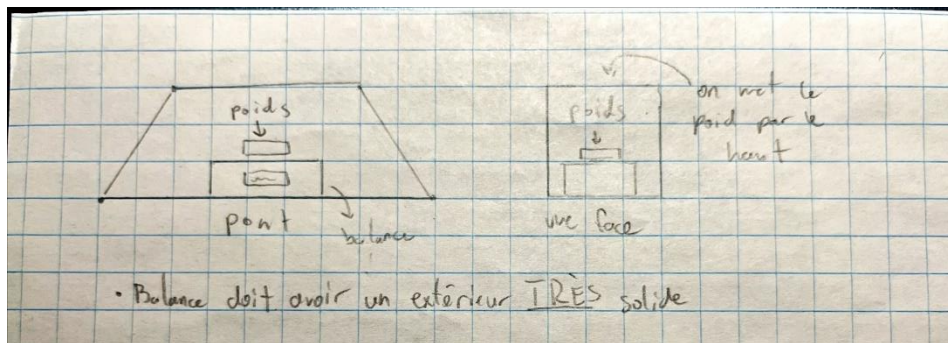 poids
pont
balance
poids
vue face
on met le
poid par le
haut
• Balance doit avoir un extérieur TRÈS solide